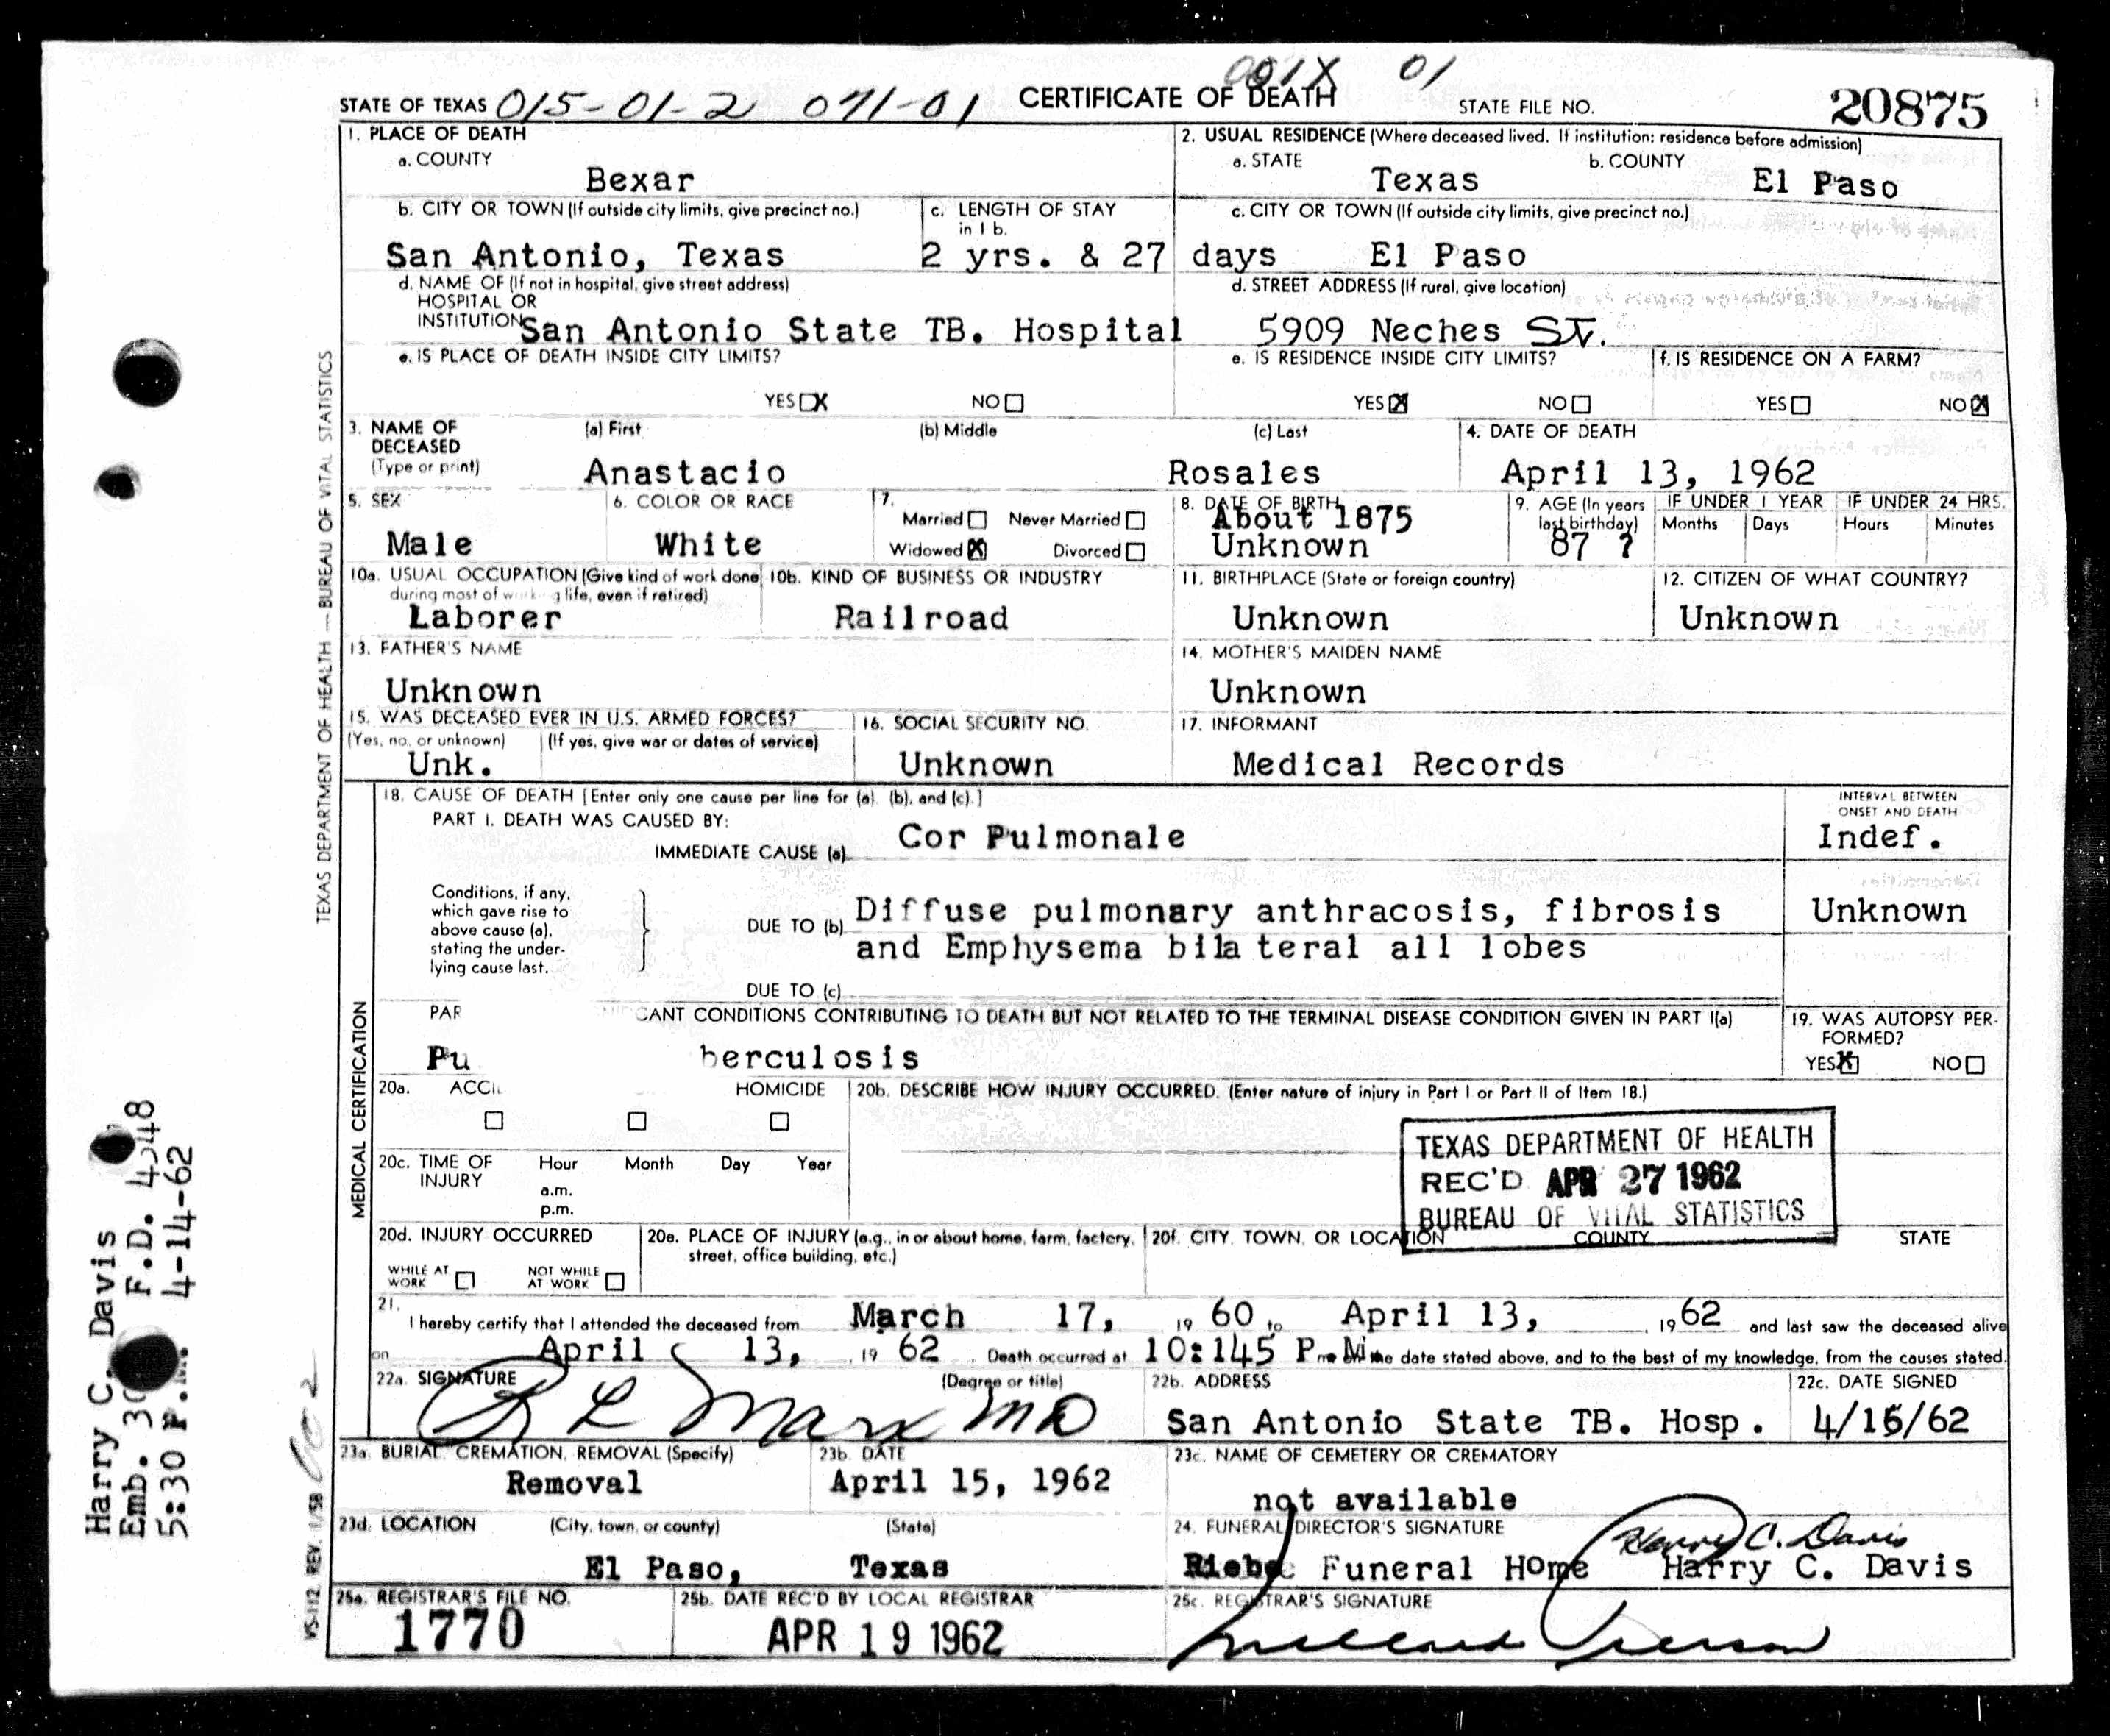 001X 01
STATE OF TEXAS 015-01-2 071-01 CERTIFICATE OF DEATH STATE FILE NO. 20875
1. PLACE OF DEATH
a. COUNTY
Bexar
2. USUAL RESIDENCE (Where deceased lived. If institution: residence before admission)
a. STATE b. COUNTY
Texas El Paso
b. CITY OR TOWN (If outside city limits, give precinct no.)
San Antonio, Texas
c. LENGTH OF STAY
in 1 b.
2 yrs. & 27 days
c. CITY OR TOWN (If outside city limits, give precinct no.)
El Paso
d. NAME OF (If not in hospital, give street address)
HOSPITAL OR
INSTITUTION San Antonio State TB. Hospital
d. STREET ADDRESS (If rural, give location)
5909 Neches St.
e. IS PLACE OF DEATH INSIDE CITY LIMITS?
YES X NO
e. IS RESIDENCE INSIDE CITY LIMITS?
YES X NO
f. IS RESIDENCE ON A FARM?
YES NO X
3. NAME OF
DECEASED
(Type or print)
(a) First (b) Middle (c) Last
Anastacio Rosales
4. DATE OF DEATH
April 13, 1962
5. SEX
Male
6. COLOR OR RACE
White
7.
Married Never Married
Widowed X Divorced
8. DATE OF BIRTH
About 1875
Unknown
9. AGE (In years
last birthday)
87 ?
IF UNDER 1 YEAR
Months Days
IF UNDER 24 HRS.
Hours Minutes
10a. USUAL OCCUPATION (Give kind of work done
during most of working life, even if retired)
Laborer
10b. KIND OF BUSINESS OR INDUSTRY
Railroad
11. BIRTHPLACE (State or foreign country)
Unknown
12. CITIZEN OF WHAT COUNTRY?
Unknown
13. FATHER'S NAME
Unknown
14. MOTHER'S MAIDEN NAME
Unknown
15. WAS DECEASED EVER IN U.S. ARMED FORCES?
(Yes, no, or unknown) (If yes, give war or dates of service)
Unk.
16. SOCIAL SECURITY NO.
Unknown
17. INFORMANT
Medical Records
18. CAUSE OF DEATH [Enter only one cause per line for (a), (b), and (c).]
PART I. DEATH WAS CAUSED BY:
IMMEDIATE CAUSE (a) Cor Pulmonale
INTERVAL BETWEEN
ONSET AND DEATH
Indef.
Conditions, if any,
which gave rise to
above cause (a),
stating the under-
lying cause last.
DUE TO (b) Diffuse pulmonary anthracosis, fibrosis
and Emphysema bila teral all lobes
Unknown
DUE TO (c)
PAR CANT CONDITIONS CONTRIBUTING TO DEATH BUT NOT RELATED TO THE TERMINAL DISEASE CONDITION GIVEN IN PART I(a)
Pu berculosis
19. WAS AUTOPSY PER-
FORMED?
YES X NO
20a. ACCI HOMICIDE
20b. DESCRIBE HOW INJURY OCCURRED. (Enter nature of injury in Part I or Part II of Item 18.)
TEXAS DEPARTMENT OF HEALTH
REC'D APR 27 1962
BUREAU OF VITAL STATISTICS
20c. TIME OF
INJURY
Hour Month Day Year
a.m.
p.m.
20d. INJURY OCCURRED
WHILE AT
WORK
NOT WHILE
AT WORK
20e. PLACE OF INJURY (e.g., in or about home, farm, factory,
street, office building, etc.)
20f. CITY, TOWN, OR LOCATION COUNTY STATE
21.
I hereby certify that I attended the deceased from March 17, 19 60 to April 13, 1962 and last saw the deceased alive
on April 13, 19 62 Death occurred at 10:145 P. M. the date stated above, and to the best of my knowledge, from the causes stated.
22a. SIGNATURE (Degree or title)
R L Marx MD
22b. ADDRESS
San Antonio State TB. Hosp.
22c. DATE SIGNED
4/15/62
23a. BURIAL, CREMATION, REMOVAL (Specify)
Removal
23b. DATE
April 15, 1962
23c. NAME OF CEMETERY OR CREMATORY
not available
23d. LOCATION (City, town, or county) (State)
El Paso, Texas
24. FUNERAL DIRECTOR'S SIGNATURE
Harry C. Davis
Riebe Funeral Home Harry C. Davis
25a. REGISTRAR'S FILE NO.
1770
25b. DATE REC'D BY LOCAL REGISTRAR
APR 19 1962
25c. REGISTRAR'S SIGNATURE
TEXAS DEPARTMENT OF HEALTH — BUREAU OF VITAL STATISTICS
MEDICAL CERTIFICATION
VS-112 REV. 1/58
Harry C. Davis
Emb. F.D.
5:30 P.M. 4-14-62